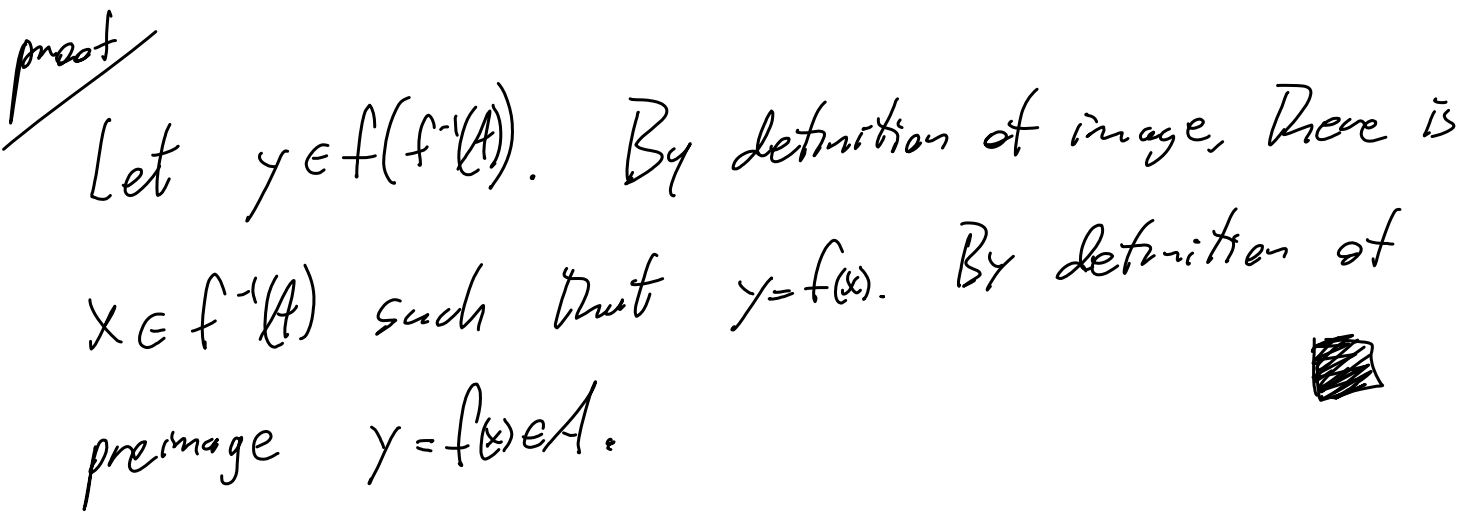 proof
Let y ∈ f(f⁻¹(A)). By definition of image, there is
x ∈ f⁻¹(A) such that y = f(x). By definition of
preimage y = f(x) ∈ A.